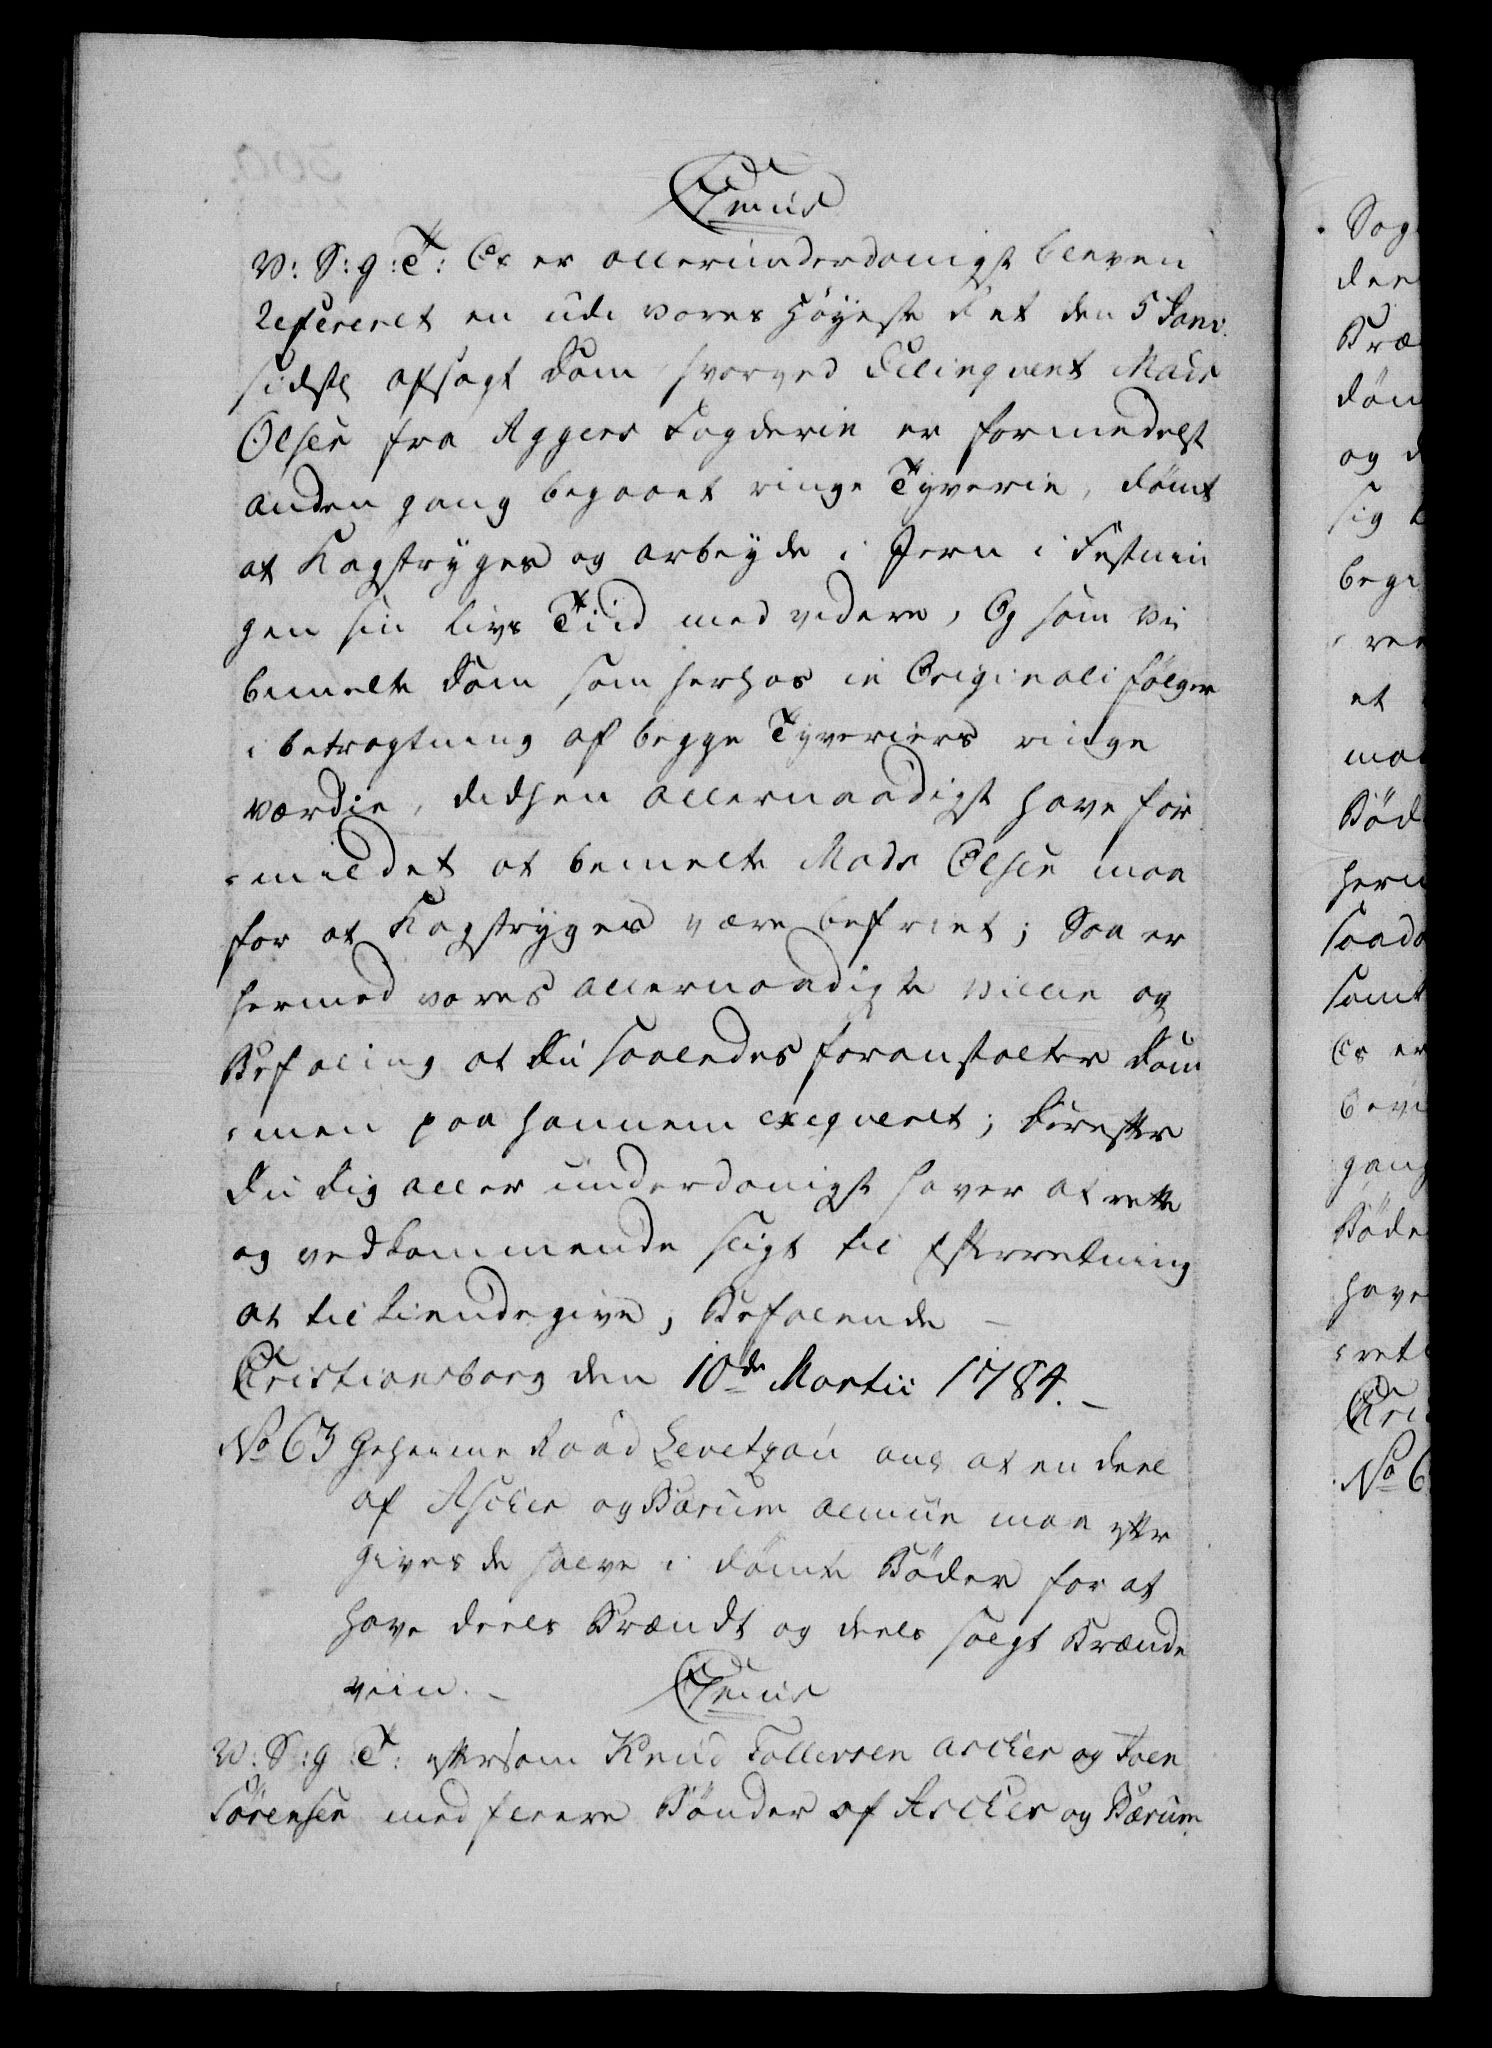 CTimus
W: S: g: T: Os er allerunderdanigst bleven
Refereret en udi vores Höyeste Ret den 5 Janv.
sidste afsagt Dom hvorved Delinqvent Mads
Olsen fra Aggers Fogderie er formedelst
anden gang begaaet ringe Tyverie, dömt
at Kagstryges og arbeyde i Jern i Festnin
gen sin Livs Tiid med videre, Og som Vi
bemelte Dom som herhos in Originali fölger
i betragtning af begge Tyveriers ringe
værdie, Didhen allernaadigst have for
-mildet at bemelte Mads Olsen maa
for at Kagstryges være befriet; Saa er
hermed vores allernaadigste Villie og
Befaling at Du saaledes foranstalter Dom
-men paa hannem exeqveret; Derefter
Du Dig allerunderdanigst haver at rette
og vedkommende sligt til Efterretning
at tilkiendegive, Befalende –
Christiansborg den 10de Martii 1784. –
No 63 Geheime Raad Levetzau ang at en deel
af Ascher og Bærum Almue maa efter
gives de halve i dömte Böder for at
have deels Brændt og deels solgt Brænde
viin. –
CTimus
W: S: g: T: eftersom Knud Tollevsen Ascher og Joen
Sörensen med fleere Bönder af Ascher og Bærum
Sog
dee
Bræ
döm
og d
sig
begi
ree
et
maa
Böd
herm
saada
samt
Os er
bevi
gang
Böde
have
-rett
Chri
No 6